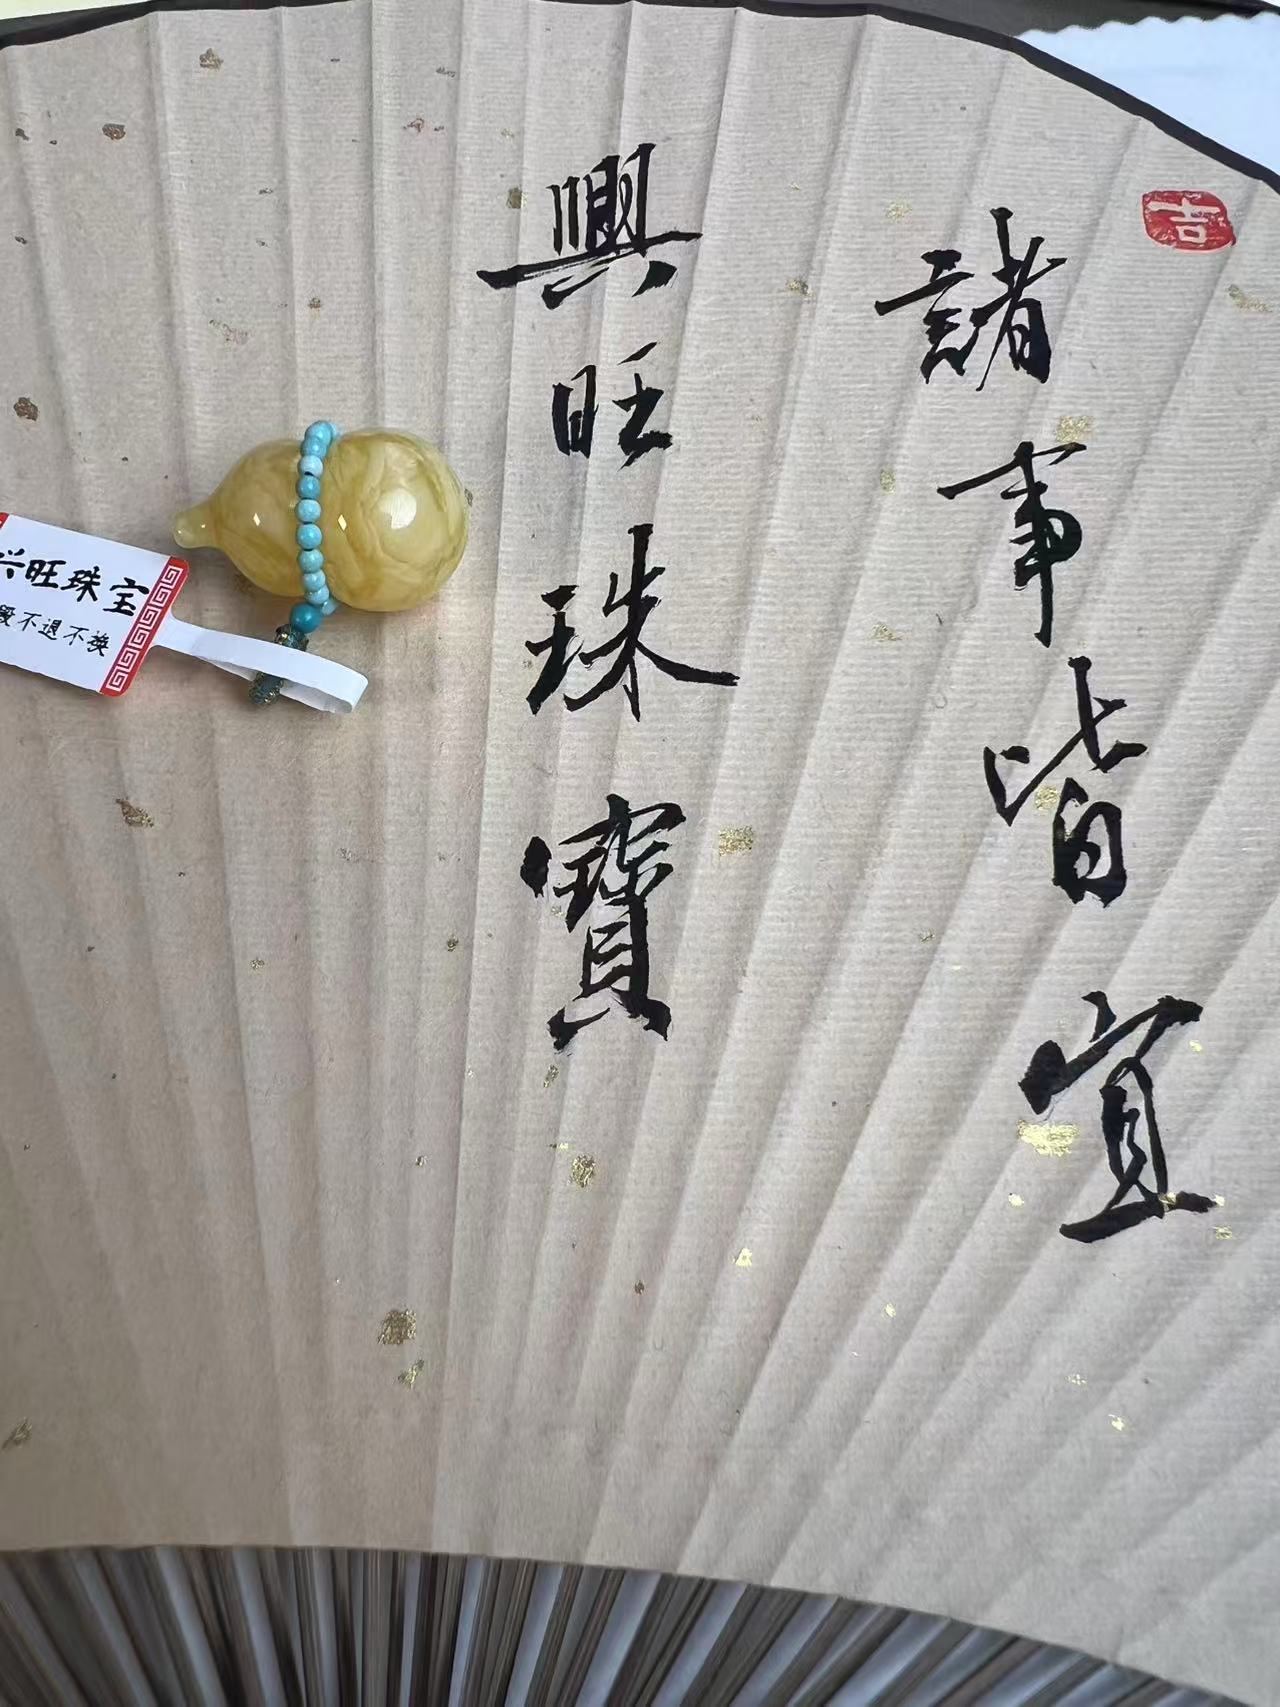 吉
諸事皆宜
興旺珠寶
兴旺珠宝
毁不退不换